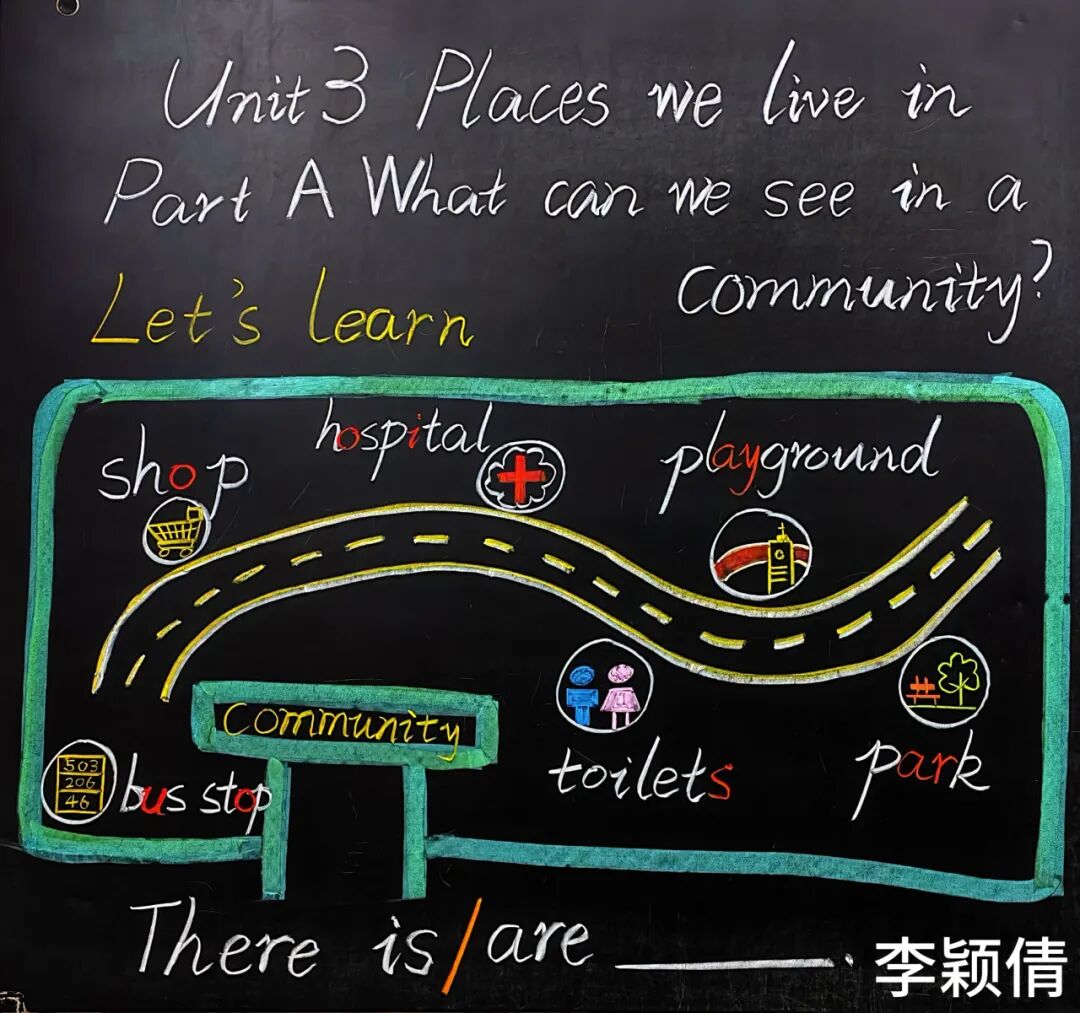 Unit 3 Places we live in
Part A What can we see in a
community?
Let's learn
shop
hospital
playground
community
503
206
46
bus stop
toilets
park
There is/are ______.
李颖倩